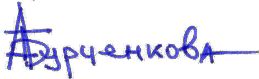 АБурченкова